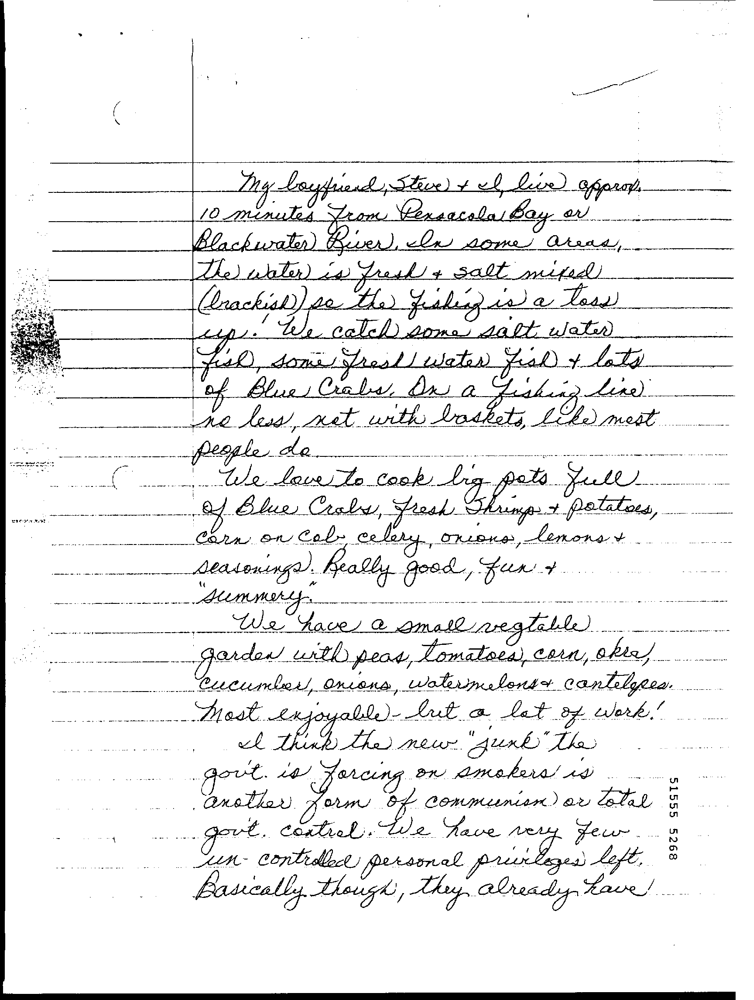 My boyfriend, Steve + I, live approx.
10 minutes from Pensacola Bay or
Blackwater River. In some areas,
the water is fresh + salt mixed
(brackish) so the fishing is a toss
up! We catch some salt water
fish, some fresh water fish + lots
of Blue Crabs. On a fishing line
no less, not with baskets, like most
people do
We love to cook big pots full
of Blue Crabs, fresh Shrimp + potatoes,
corn on cob, celery, onions, lemons +
seasonings. Really good, fun +
"summery."
We have a small vegtable
garden with peas, tomatoes, corn, okra,
cucumber, onions, watermelons + cantelopes.
Most enjoyable - but a lot of work!
I think the new "junk" the
gov't. is forcing on smokers is
another form of communism or total
govt. control. We have very few
un-controlled personal privileges left.
Basically though, they already have!
51555 5268